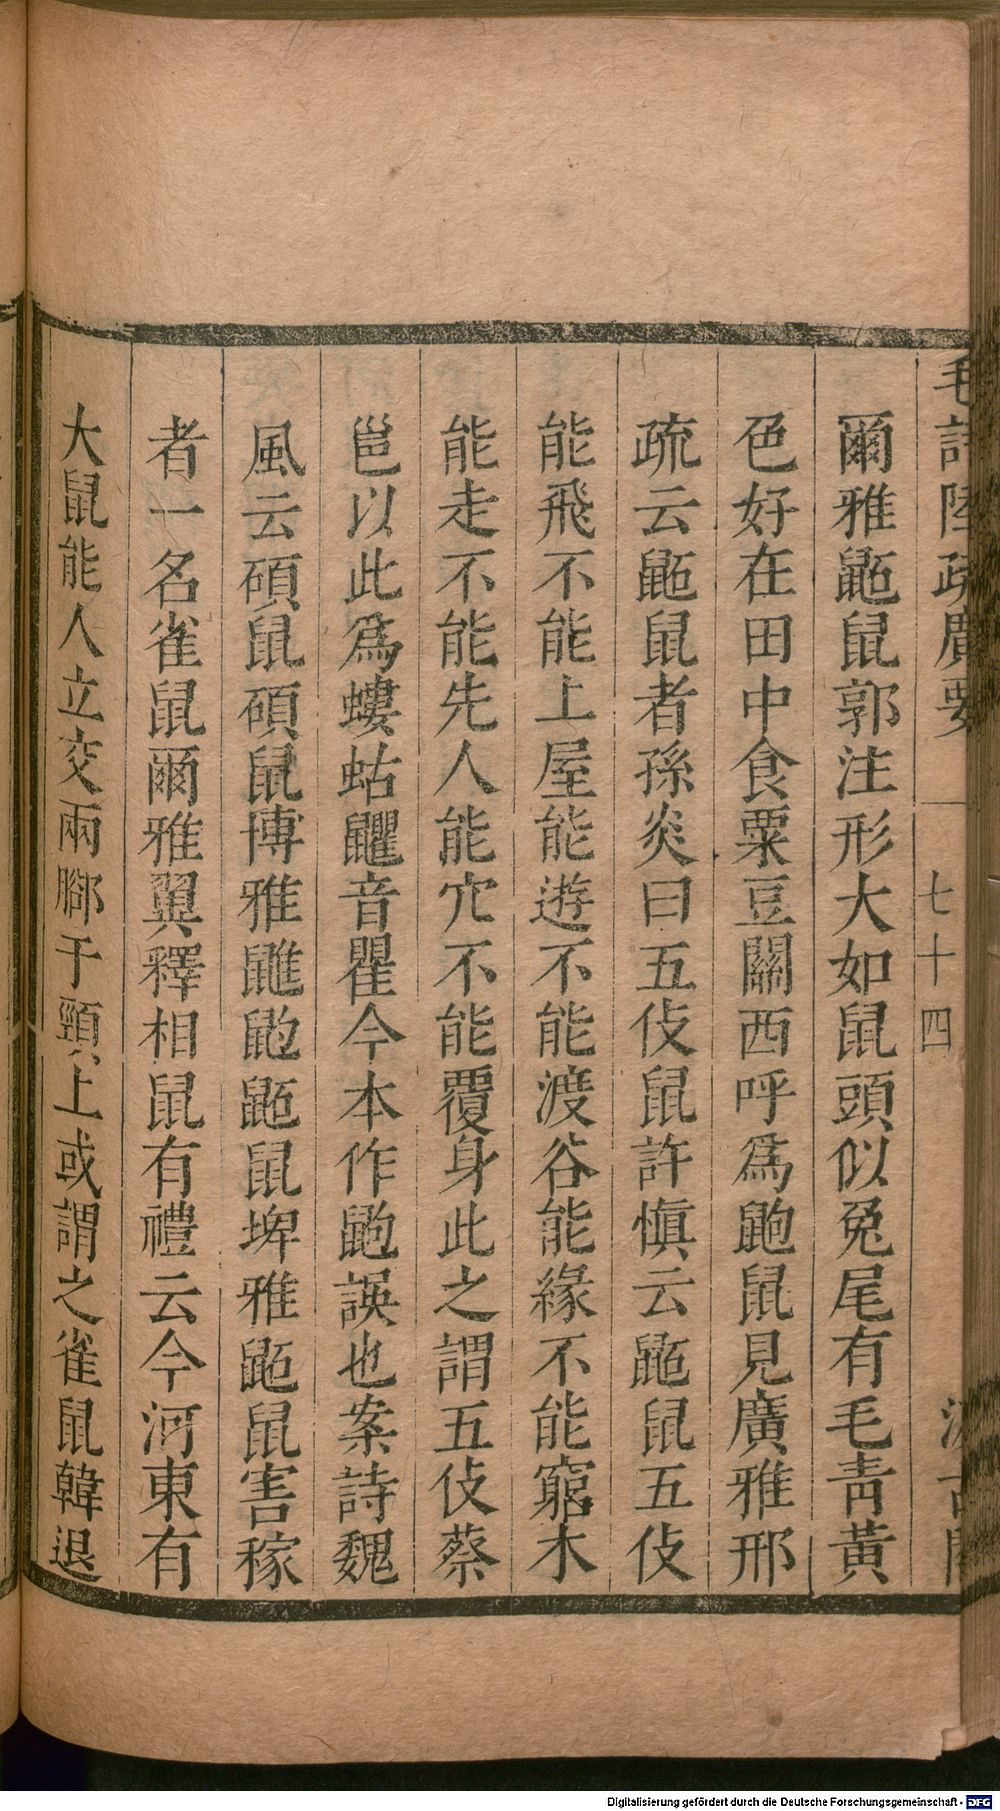 毛詩陸疏廣要
七十四
汲古閣
爾雅鼫鼠郭注形大如鼠頭似兔尾有毛靑黃
色好在田中食粟豆關西呼爲鼩鼠見廣雅邢
疏云鼫鼠者孫炎曰五伎鼠許愼云鼫鼠五伎
能飛不能上屋能遊不能渡谷能緣不能窮木
能走不能先人能穴不能覆身此之謂五伎蔡
邕以此爲螻蛄鼺音瞿今本作鼩誤也案詩魏
風云碩鼠碩鼠博雅䶆鼩鼫鼠埤雅鼫鼠害稼
者一名雀鼠爾雅翼釋相鼠有禮云今河東有
大鼠能人立交兩脚于頸上或謂之雀鼠韓退
Digitalisierung gefördert durch die Deutsche Forschungsgemeinschaft - DFG